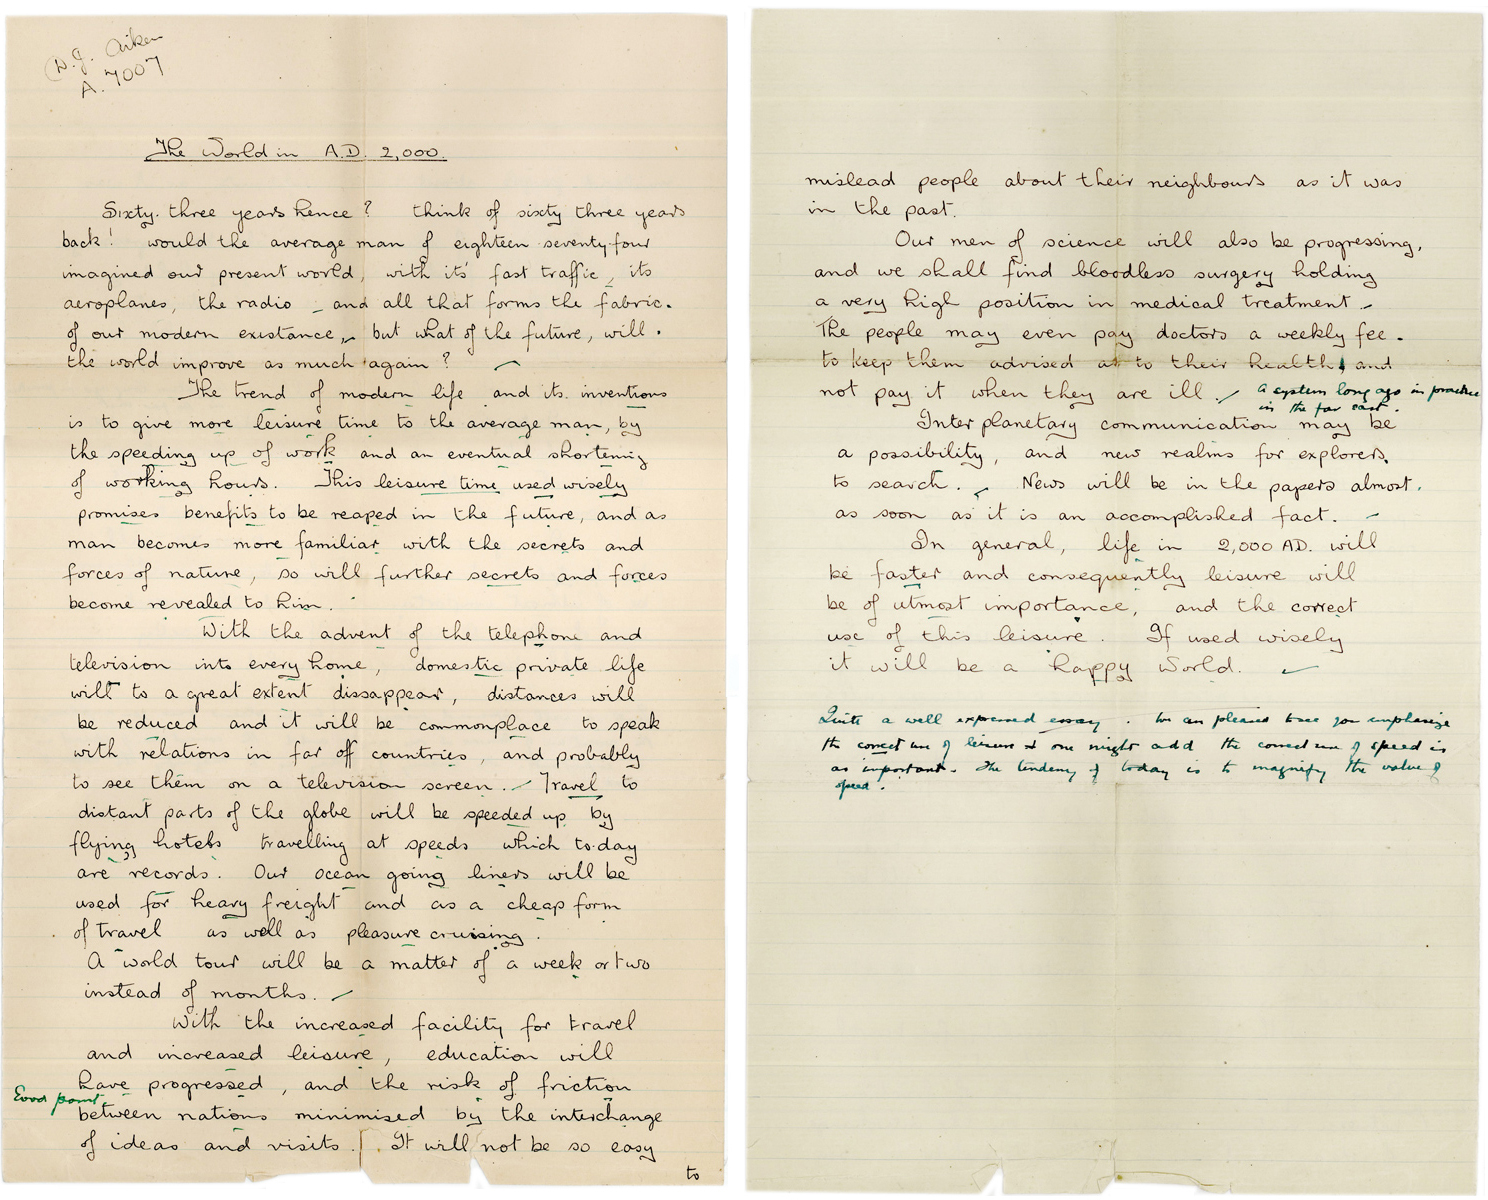 D.J. Aiken
A. 7007
The World in A.D. 2,000.
Sixty. three years hence? think of sixty three years
back! would the average man of eighteen seventy four
imagined our present world, with its' fast traffic, its
aeroplanes, the radio - and all that forms the fabric.
of our modern existance, but what of the future, will.
the world improve as much again?
The trend of modern life and its inventions
is to give more leisure time to the average man, by
the speeding up of work and an eventual shortening
of working hours. This leisure time used wisely
promises benefits to be reaped in the future, and as
man becomes more familiar with the secrets and
forces of nature, so will further secrets and forces
become revealed to him.
With the advent of the telephone and
television into every home, domestic private life
will to a great extent dissappear, distances will
be reduced and it will be commonplace to speak
with relations in far off countries, and probably
to see them on a television screen. Travel to
distant parts of the globe will be speeded up by
flying hotels travelling at speeds which to-day
are records. Our ocean going liners will be
used for heavy freight and as a cheap form
of travel as well as pleasure cruising.
A world tour will be a matter of a week or two
instead of months.
With the increased facility for travel
and increased leisure, education will
have progressed, and the risk of friction
Good point
between nations minimised by the interchange
of ideas and visits. It will not be so easy
to
mislead people about their neighbours as it was
in the past.
Our men of science will also be progressing,
and we shall find bloodless surgery holding
a very high position in medical treatment.
The people may even pay doctors a weekly fee.
to keep them advised as to their health, and
not pay it when they are ill. A system long ago in practice
in the far east.
Interplanetary communication may be
a possibility, and new realms for explorers.
to search. News will be in the papers almost.
as soon as it is an accomplished fact.
In general, life in 2,000 AD. will
be faster and consequently leisure will
be of utmost importance, and the correct
use of this leisure. If used wisely
it will be a happy World.
Quite a well expressed essay. We are pleased to see you emphasize
the correct use of leisure & one might add the correct use of speed is
as important. The tendency of today is to magnify the value of
speed.